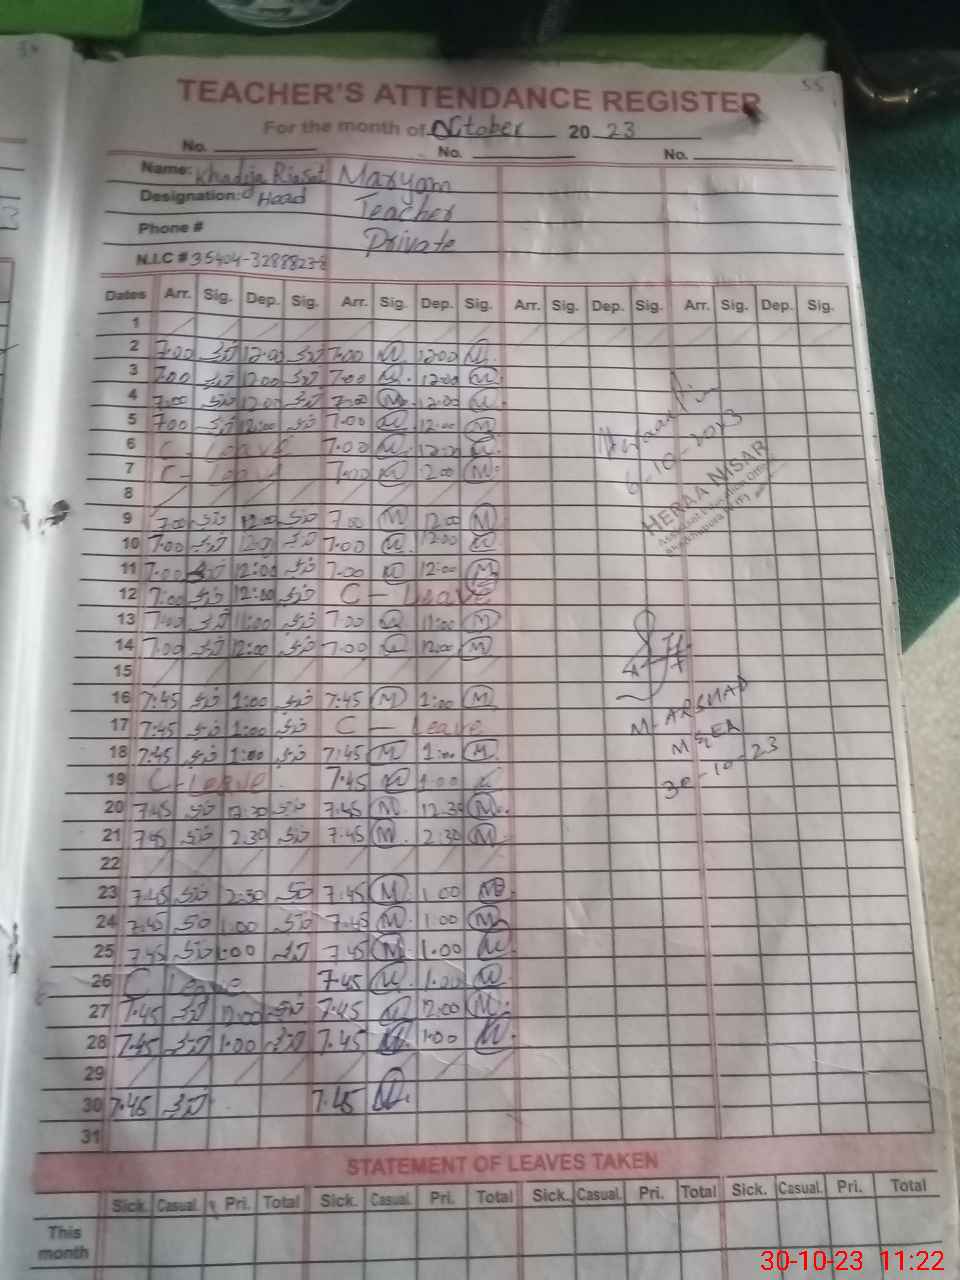 55
TEACHER'S ATTENDANCE REGISTER
For the month of October 20 23
No. No. No.
Name: Khadija Riasat Maryam
Designation: Head Teacher
Phone # Private
N.I.C # 35404-3288823-8
Dates Arr. Sig. Dep. Sig. Arr. Sig. Dep. Sig. Arr. Sig. Dep. Sig. Arr. Sig. Dep. Sig.
1
2 7:00 12:00 7:00 M 12:00 M
3 7:00 12:00 7:00 M 12:00 M
4 7:00 12:00 7:00 M 12:00 M
5 7:00 12:00 7:00 M 12:00 M
6 C - Leave 7:00 M 12:00 M
7 C - Leave 7:00 M 12:00 M
6-10-2023
8
HERAA NISAR
9 7:00 12:00 7:00 M 12:00 M
10 7:00 12:00 7:00 M 12:00 M
11 7:00 12:00 7:00 M 12:00 M
12 7:00 12:00 C - Leave
13 7:00 11:00 7:00 M 11:00 M
14 7:00 12:00 7:00 M 12:00 M
15
16 7:45 1:00 7:45 M 1:00 M
17 7:45 1:00 C - Leave
M. ARSHAD
18 7:45 1:00 7:45 M 1:00 M
19 C - Leave 7:45 M 1:00 M
30-10-23
20 7:45 12:30 7:45 M 12:30 M
21 7:45 2:30 7:45 M 2:30 M
22
23 7:45 2:30 7:45 M 1:00 M
24 7:45 1:00 7:45 M 1:00 M
25 7:45 1:00 7:45 M 1:00 M
26 C Leave 7:45 M 1:00 M
27 7:45 12:00 7:45 M 12:00 M
28 7:45 1:00 7:45 M 1:00 M
29
30 7:45 7:45 M
31
STATEMENT OF LEAVES TAKEN
Sick. Casual. Pri. Total Sick. Casual. Pri. Total Sick. Casual. Pri. Total Sick. Casual. Pri. Total
This
month
30-10-23 11:22